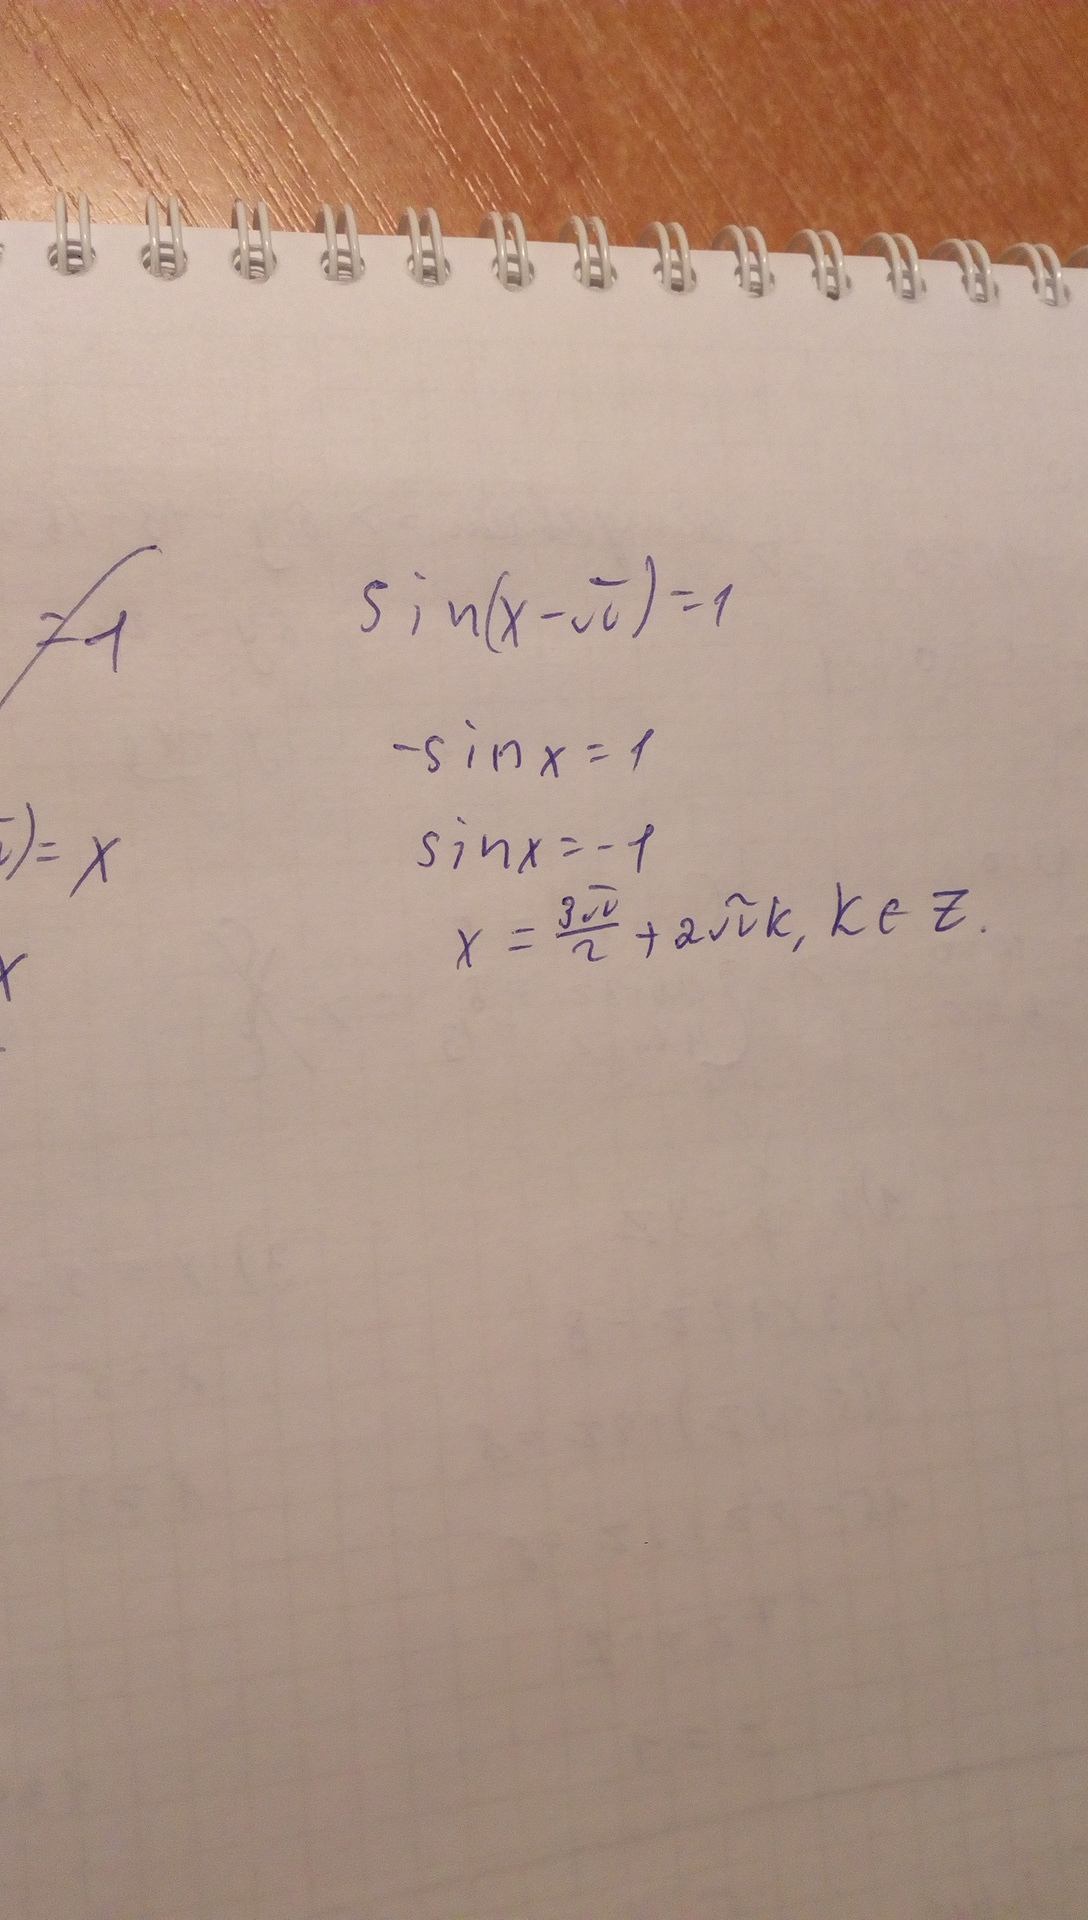 =1
sin(x-π)=1
-sinx=1
)=x
sinx=-1
x
x = 3π/2 + 2πk, k∈Z.